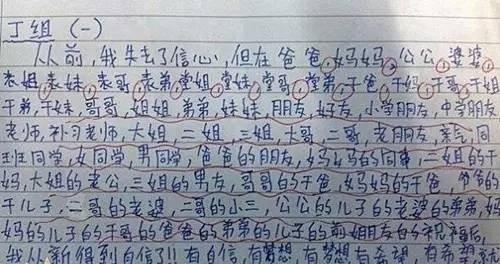 丁组 (一)
从前,我失去了信心,但在爸爸,妈妈,公公,婆婆,
表姐,表妹,表哥,表弟,堂姐,堂妹,堂哥,堂弟,干爸,干妈,干哥,干姐
干弟,干妹,哥哥,姐姐,弟弟,妹妹,朋友,好友,小学朋友,中学朋友
老师,补习老师,大姐,二姐,三姐,大哥,二哥,老朋友,亲戚,同
班同学,女同学,男同学,爸爸的朋友,妈妈的同事,二姐的干
妈,大姐的老公,三姐的男友,哥哥的干爸,妈妈的干爸,爷爷的
干儿子,二哥的老婆,二哥的小三,公公的儿子的老婆的弟弟,妈
妈的儿子的干哥的爸爸的弟弟的儿子的前姐朋友的祝福后,
我从新得到自信了!!有自信,有梦想,有梦想有希望,有希望